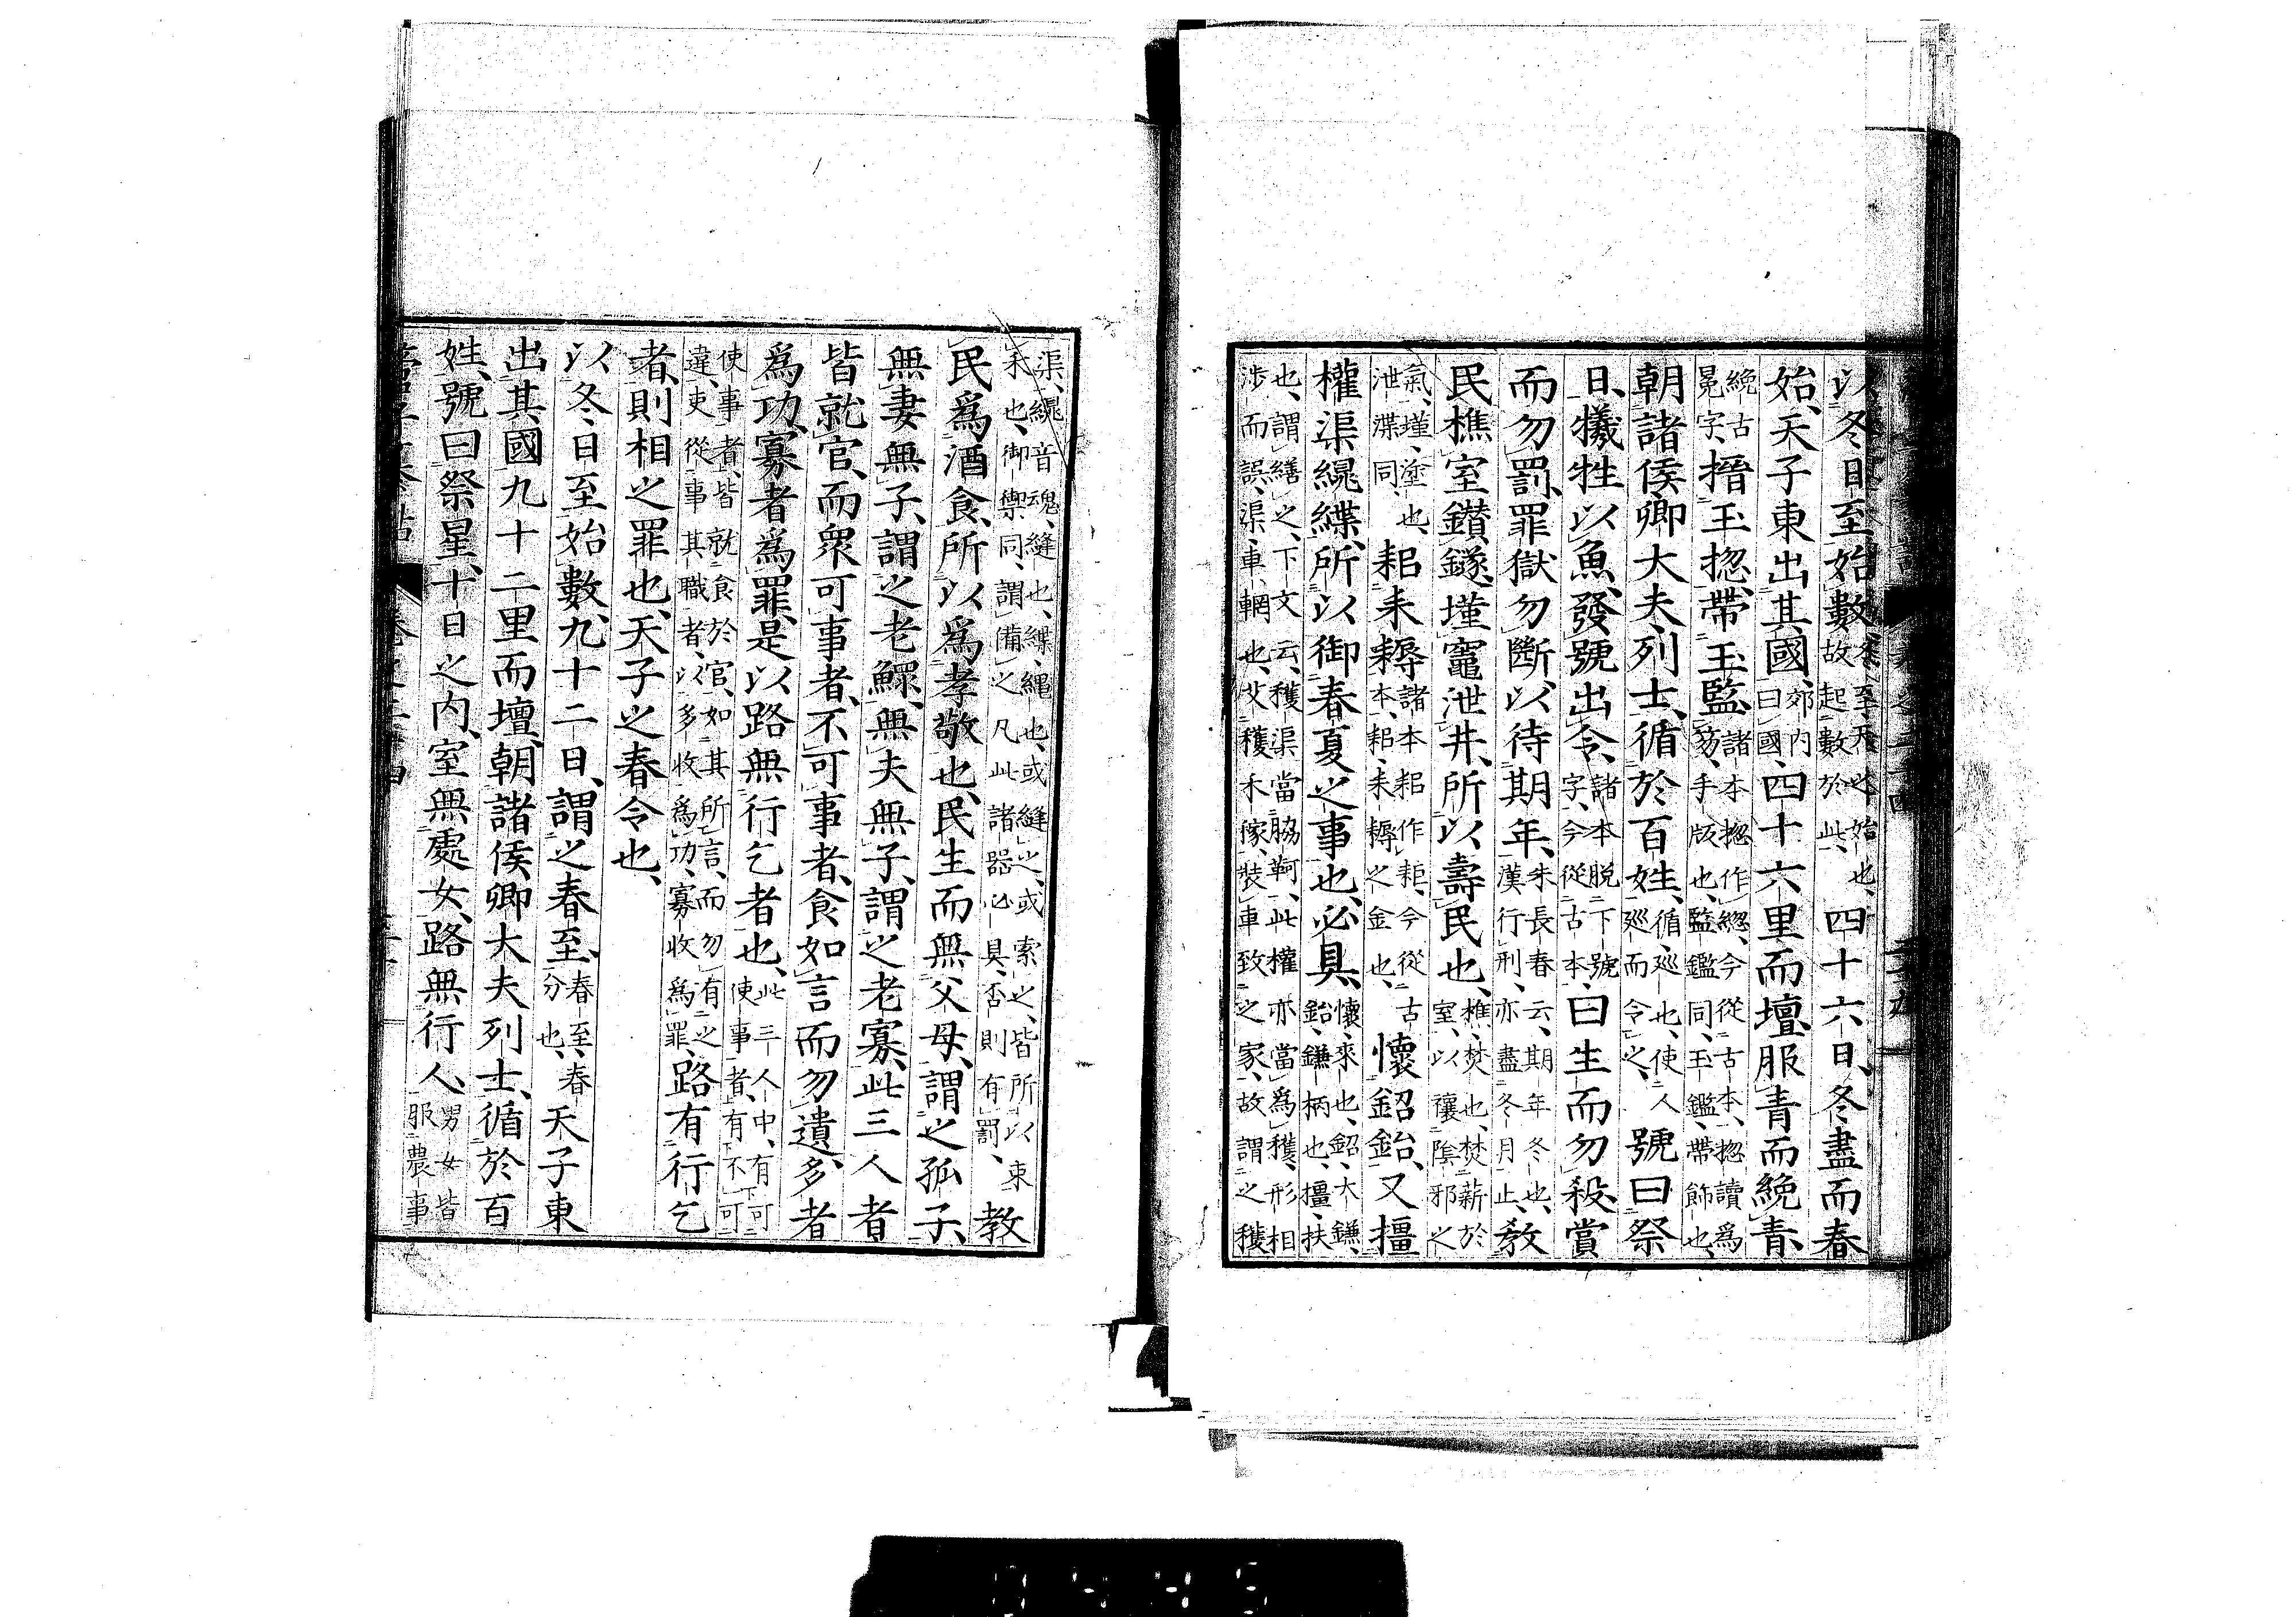 以冬日至始、數冬至、天之始也、故起數於此、四十六日、冬盡而春
始、天子東出其國、郊內曰國、四十六里而壇、服青而絻青、
絻古冕字、搢玉揔、帶玉監、諸本揔作緫、今從古本、揔讀爲笏、手版也、監鑑同、玉鑑、帶飾也、
朝諸侯卿大夫列士、循於百姓、循、廵也、使人廵而令之、號曰祭
日、犧牲以魚、發號出令、諸本脫下號字、今從古本、曰生而勿殺、賞
而勿罰、罪獄勿斷、以待期年、朱長春云、期年冬也、漢行刑、亦盡冬月止、教
民樵室鑽鐩、墐竈泄井、所以壽民也、樵、焚也、焚薪於室、以禳陰邪之
氣、墐、塗也、泄渫同、耜耒耨諸本耜作耟、今從古本、耜耒耨之金也、懷鉊鈶、又橿
權渠繉緤、所以御春夏之事也、必具、懷、來也、鉊、大鎌、鈶、鎌柄也、橿、扶
也、謂繕之、下文云、穫渠當脇䩭、此權亦當爲穫、形相涉而誤、渠、車輞也、艾穫禾稼、裝車致之家、故謂之穫
渠、繉音魂、縫也、緤、繩也、或縫之、或索之、皆所以束禾也、御禦同、謂備之、凡此諸器必具、否則有罰、教
民爲酒食、所以爲孝敬也、民生而無父母、謂之孤子、
無妻無子、謂之老鰥、無夫無子、謂之老寡、此三人者
皆就官、而眾可事者、不可事者、食如言而勿遺、多者
爲功、寡者爲罪、是以路無行乞者也、此三人中、有可使事者、有不可
使事者、皆就食於官、如其所言、而勿有之違、吏從事其職者、以多收爲功、寡收爲罪、路有行乞
者、則相之罪也、天子之春令也、
以冬日至始、數九十二日、謂之春至、春至、春分也、天子東
出其國九十二里而壇、朝諸侯卿大夫列士、循於百
姓、號曰祭星、十日之內、室無處女、路無行人、男女皆服農事